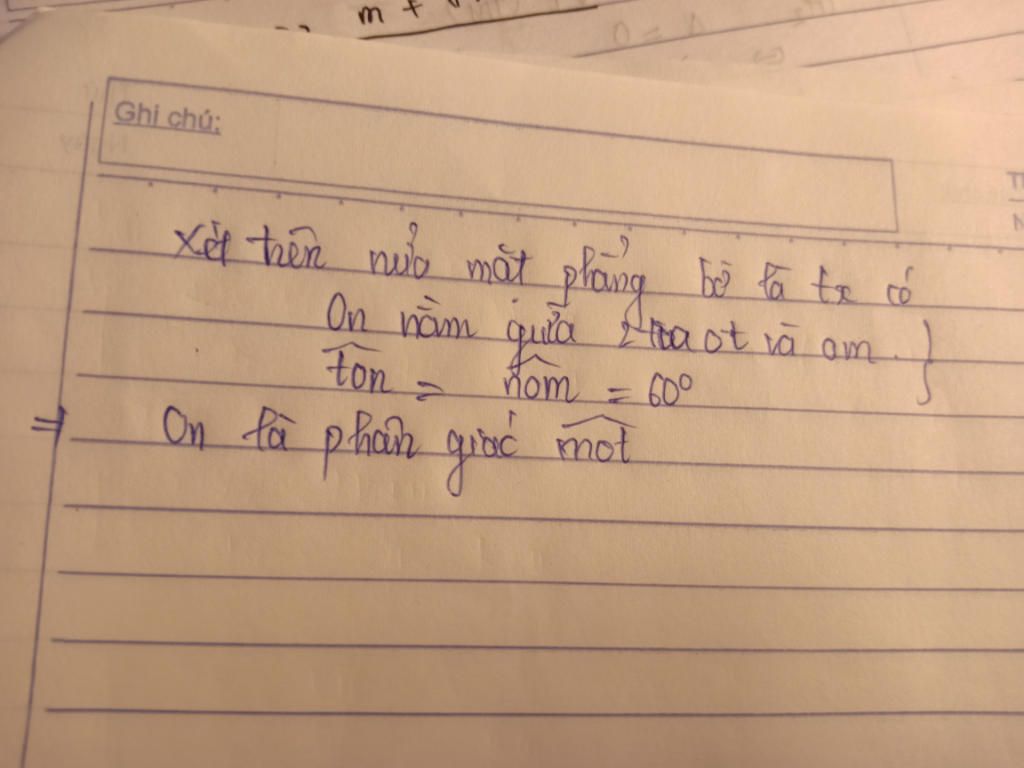 m +
Δ = 0
Ghi chú:
Xét trên nửa mặt phẳng bờ là tx có
On nằm giữa 2 tia ot và om. }
tôn = nôm = 60⁰
⇒ On là phân giác mot